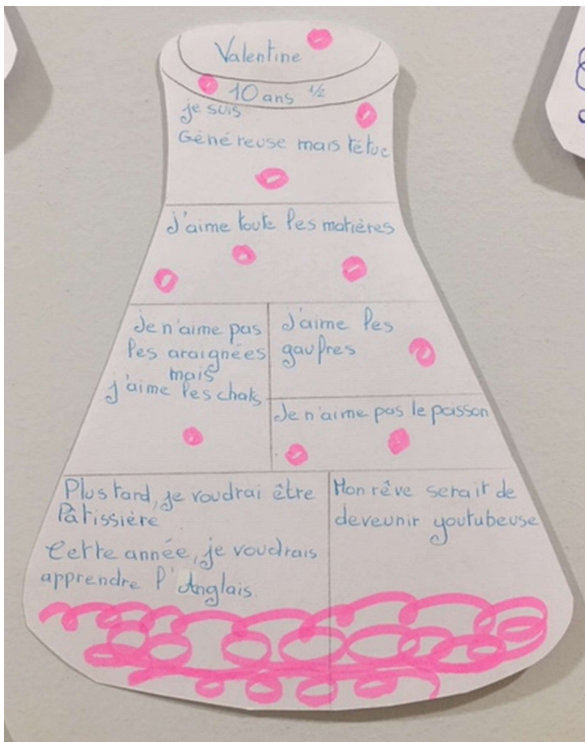 Valentine
10 ans 1/2
je suis
Généreuse mais têtue
J'aime toute les matières
Je n'aime pas
les araignées
mais
j'aime les chats
J'aime les
gaufres
Je n'aime pas le poisson
Plus tard, je voudrai être
Pâtissière
Cette année, je voudrais
apprendre l'Anglais.
Mon rêve serait de
deveunir youtubeuse